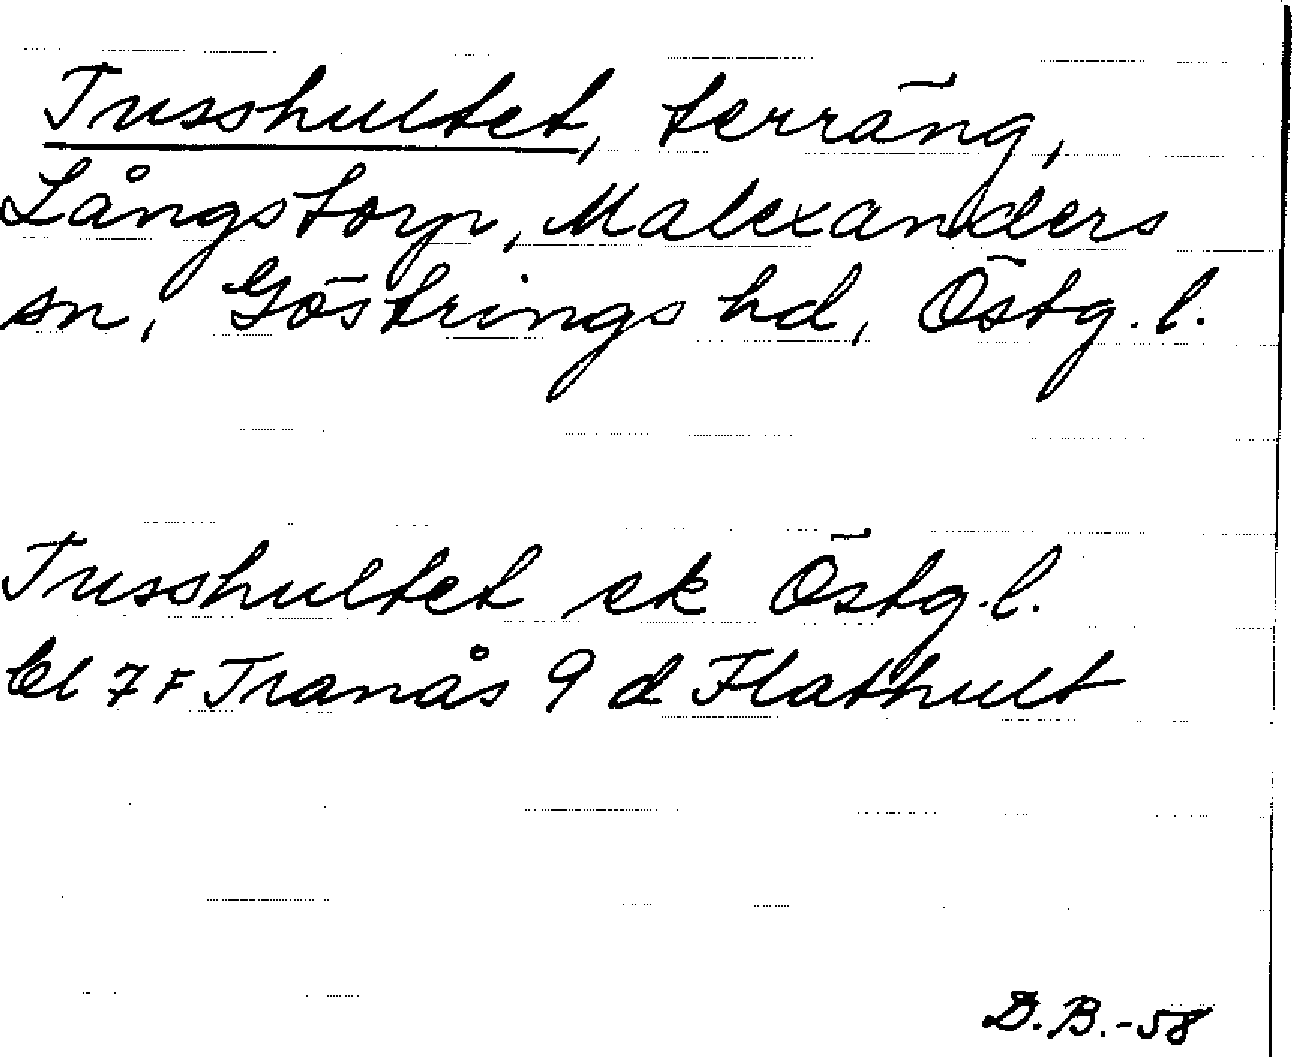 Trusshultet, terräng,
Långstorp, Malexanders
sn, Göstrings hd, Östg. l.
Trusshultet ek Östg. l.
bl 7 F Tranås 9 d Flathult
D.B.-58